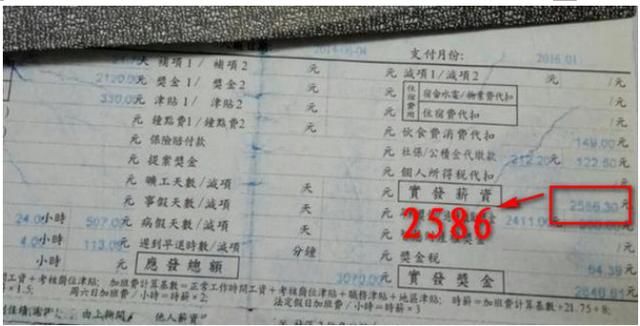 2014-06-04 支付月份: 2016.01
天 補項1/ 補項2 元 元 減項1/減項2 元 /元
2120.00元 獎金1/ 獎金2 元 住宿費用 宿舍水電/物業費代扣 /元
330.00元 津貼1/ 津貼2 元 住宿費代扣
元 鐘點費1/ 鐘點費2 元 元 伙食費消費代扣 149.00元
元 保險賠付款 元 社保/公積金代繳款 212.20元 122.50元
元 提案獎金 元 個人所得稅代扣
元 曠工天數/減項 天 元 實發薪資 2586.30元
元 事假天數/減項 天 2586 2411.00
24.0小時 507.0元 病假天數/減項 天
4.0小時 113.0元 遲到早退時數/減項 分鐘 元 獎金稅 64.39元
小時 元 應發總額 3070.00元 實發獎金
工資+考核崗位津貼; 加班費計算基數=正常工作時間工資+考核崗位津貼+職務津貼+地區津貼; 時薪=加班費計算基數÷21.75÷8;
×1.5; 周六日加班費/小時=時薪×2; 法定假日加班費/小時=時薪×3